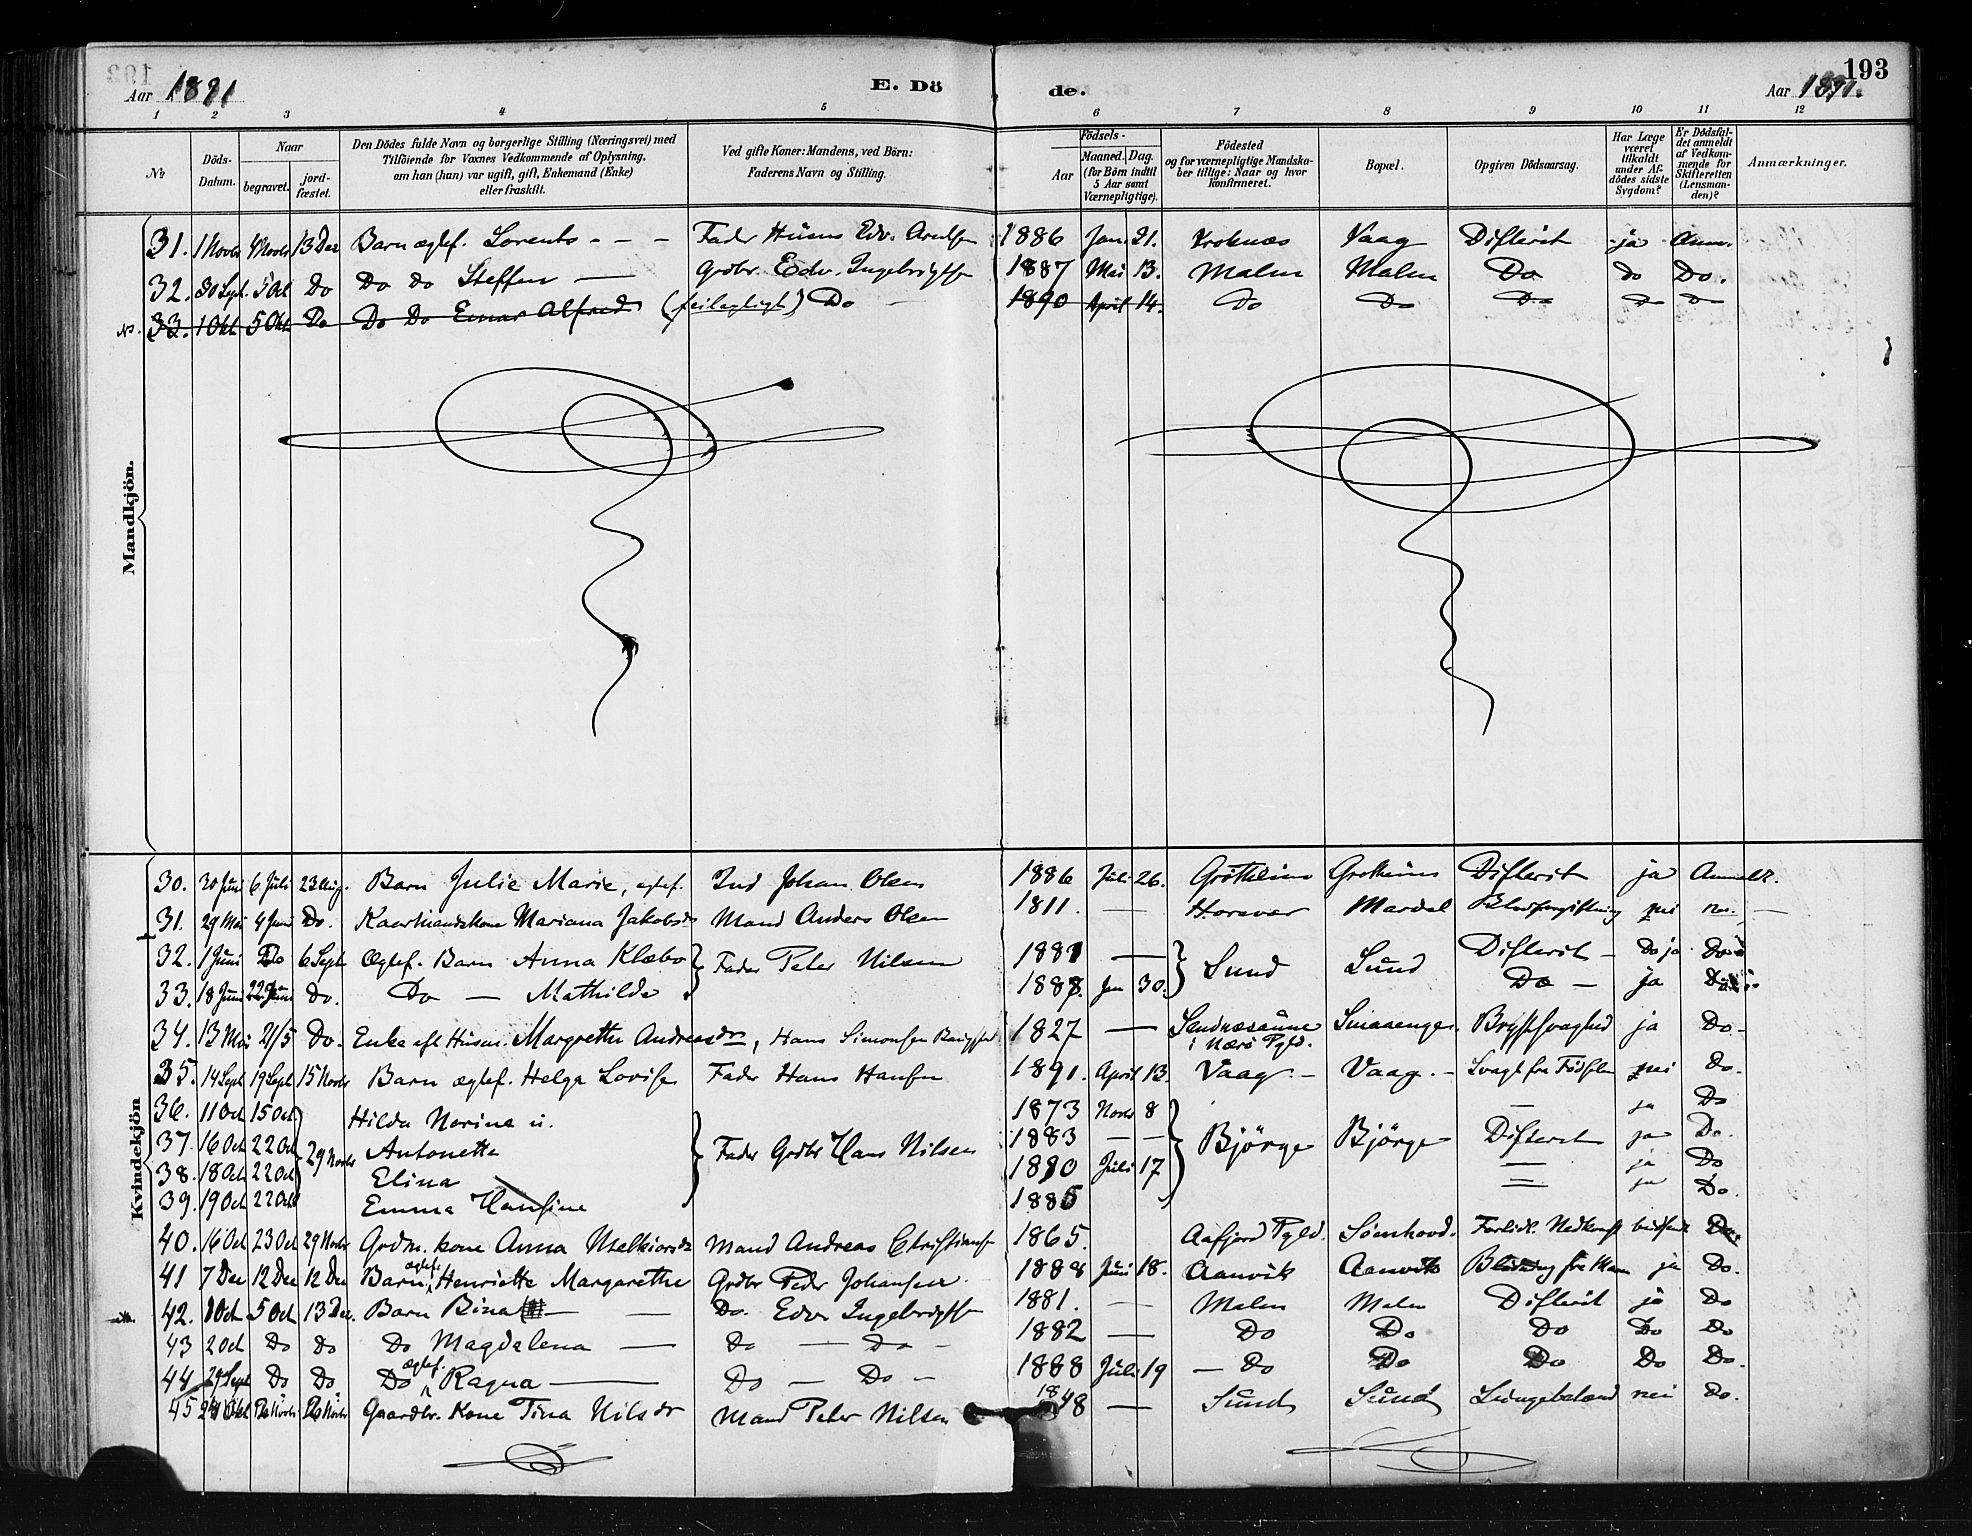 193
Aar 1891
E. Dö
de.
Aar 1891.
1 2 3 4 5 6 7 8 9 10 11 12
№
Döds-Datum.
Naar
begravet.
jord-fæstet.
Den Dödes fulde Navn og borgerlige Stilling (Næringsvei) med
Tilföiende for Voxnes Vedkommende af Oplysning,
om han (hun) var ugift, gift, Enkemand (Enke)
eller fraskilt.
Ved gifte Koner: Mandens, ved Börn:
Faderens Navn og Stilling.
Födsels-
Aar
Maaned. Dag.
(for Börn indtil
5 Aar samt
Værnepligtige).
Födested
og for værnepligtige Mandska-
ber tillige: Naar og hvor
konfirmeret.
Bopæl.
Opgiven Dödsaarsag.
Har Læge
været
tilkaldt
under Af-
dödes sidste
Sygdom?
Er Dödsfal-
det anmeldt
af Vedkom-
mende for
Skifteretten
(Lensman-
den)?
Anmærkninger.
Mandkjön.
31. 1 Novbr 4 Novbr 13 Dec Barn ægtef. Lorents - - - Fader Husm Edv. Arntsen 1886 Jan. 21. Kroknæs Vaag Difterit ja Anm.
32. 30 Sept. 5 Oct Do Do Do Steffen — Grdbr. Edv. Ingebrigtsen 1887 Mai 13. Malm Malm Do Do Do.
33. 1 Okt 5 Okt Do Do Do Einar Alfred (feilagtigt) Do 1890 April 14. Do Do Do Do Do
Kvindekjön
30. 30 Juni 6 Juli 23 Aug. Barn Julie Marie, ægtef. Ind Johan Olsen 1886 Juli 26. Grötheim Grotheim Difterit ja Anmeldt.
31. 29 Mai 4 Juni Do. Mariana Jakobsdr Mand Anders Olsen 1811. — Horsvær Mardal Blodforgiftning nei —
32. 1 Juni Do 6 Sept Ægtef. Barn Anna Klæbo Fader Peter Nilsen 1881 — Sund Sund Difterit — Do ja Do
33. 18 Juni 22 Juni Do. Do — Mathilde 1888. Jan 30. Do — ja
34. 13 Mai 21/5 Do. Enke eft Husm. Margrethe Andreasdr, Hans Simonsen 1827 — Sandnæsaune i Nærö Pgld. Smaaenget. Brystsvaghed ja Do.
35. 14 Sept 19 Sept 15 Novbr Barn ægtef. Helga Lovise Fader Hans Hansen 1891. April 13. Vaag. — Vaag. — Svagh fra Födslen nei Do.
36. 11 Oct 15 Oct Hilda Norine u. 1873 Novbr 8 — ja Do
37. 16 Oct 22 Oct 29 Novbr Antonette Fader Grdbr Hans Nilsen 1883 — — Björge Björge Difterit ja Do.
38. 18 Oct 22 Oct Elina 1890 Juli 17 — ja Do
39. 19 Oct 22 Oct Emma Hansine 1885 — ja Do.
40. 16 Oct 23 Oct 29 Novbr Grdm. kone Anna Melkiorsdr Mand Andreas Christiansen 1865. Aafjord Pgld. Sömhovd. Forlidt. Nedkomst
41 7 Dec 12 Dec 12 Dec Barn ægtef. Henriette Margarethe Grdbr Peder Johansen 1888 Juni 18. Aanvik Aanvik Blödning fra ja Do.
42. 1 Oct 5 Oct 13 Dec. Barn Bina — Do. Edv Ingebrigtsen 1881. — Malm Malm Difterit ja Do
43 2 Oct Do Do Do Magdalena — Do — Do — 1882 — Do Do Do Do Do
44 29 Sept Do Do Do ægtef. Ragna — Do — Do — 1888 Juli 19 — Do Do Do Do Do.
45 Gaardbr. Kone Tina Nilsdr Mand Peter Nilsen 1848 — Sund Sund nei Do.